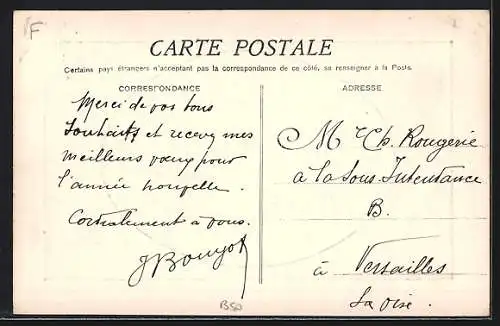 F
CARTE POSTALE
Certains pays étrangers n'acceptant pas la correspondance de ce côté, se renseigner à la Poste.
CORRESPONDANCE
Merci de vos bons
souhaits et recevez mes
meilleurs vœux pour
l'année nouvelle.
Cordialement à vous.
ADRESSE
Mr Ch. Rougerie
à la Sous Intendance
B.
à Versailles
Sa Oise.
B50